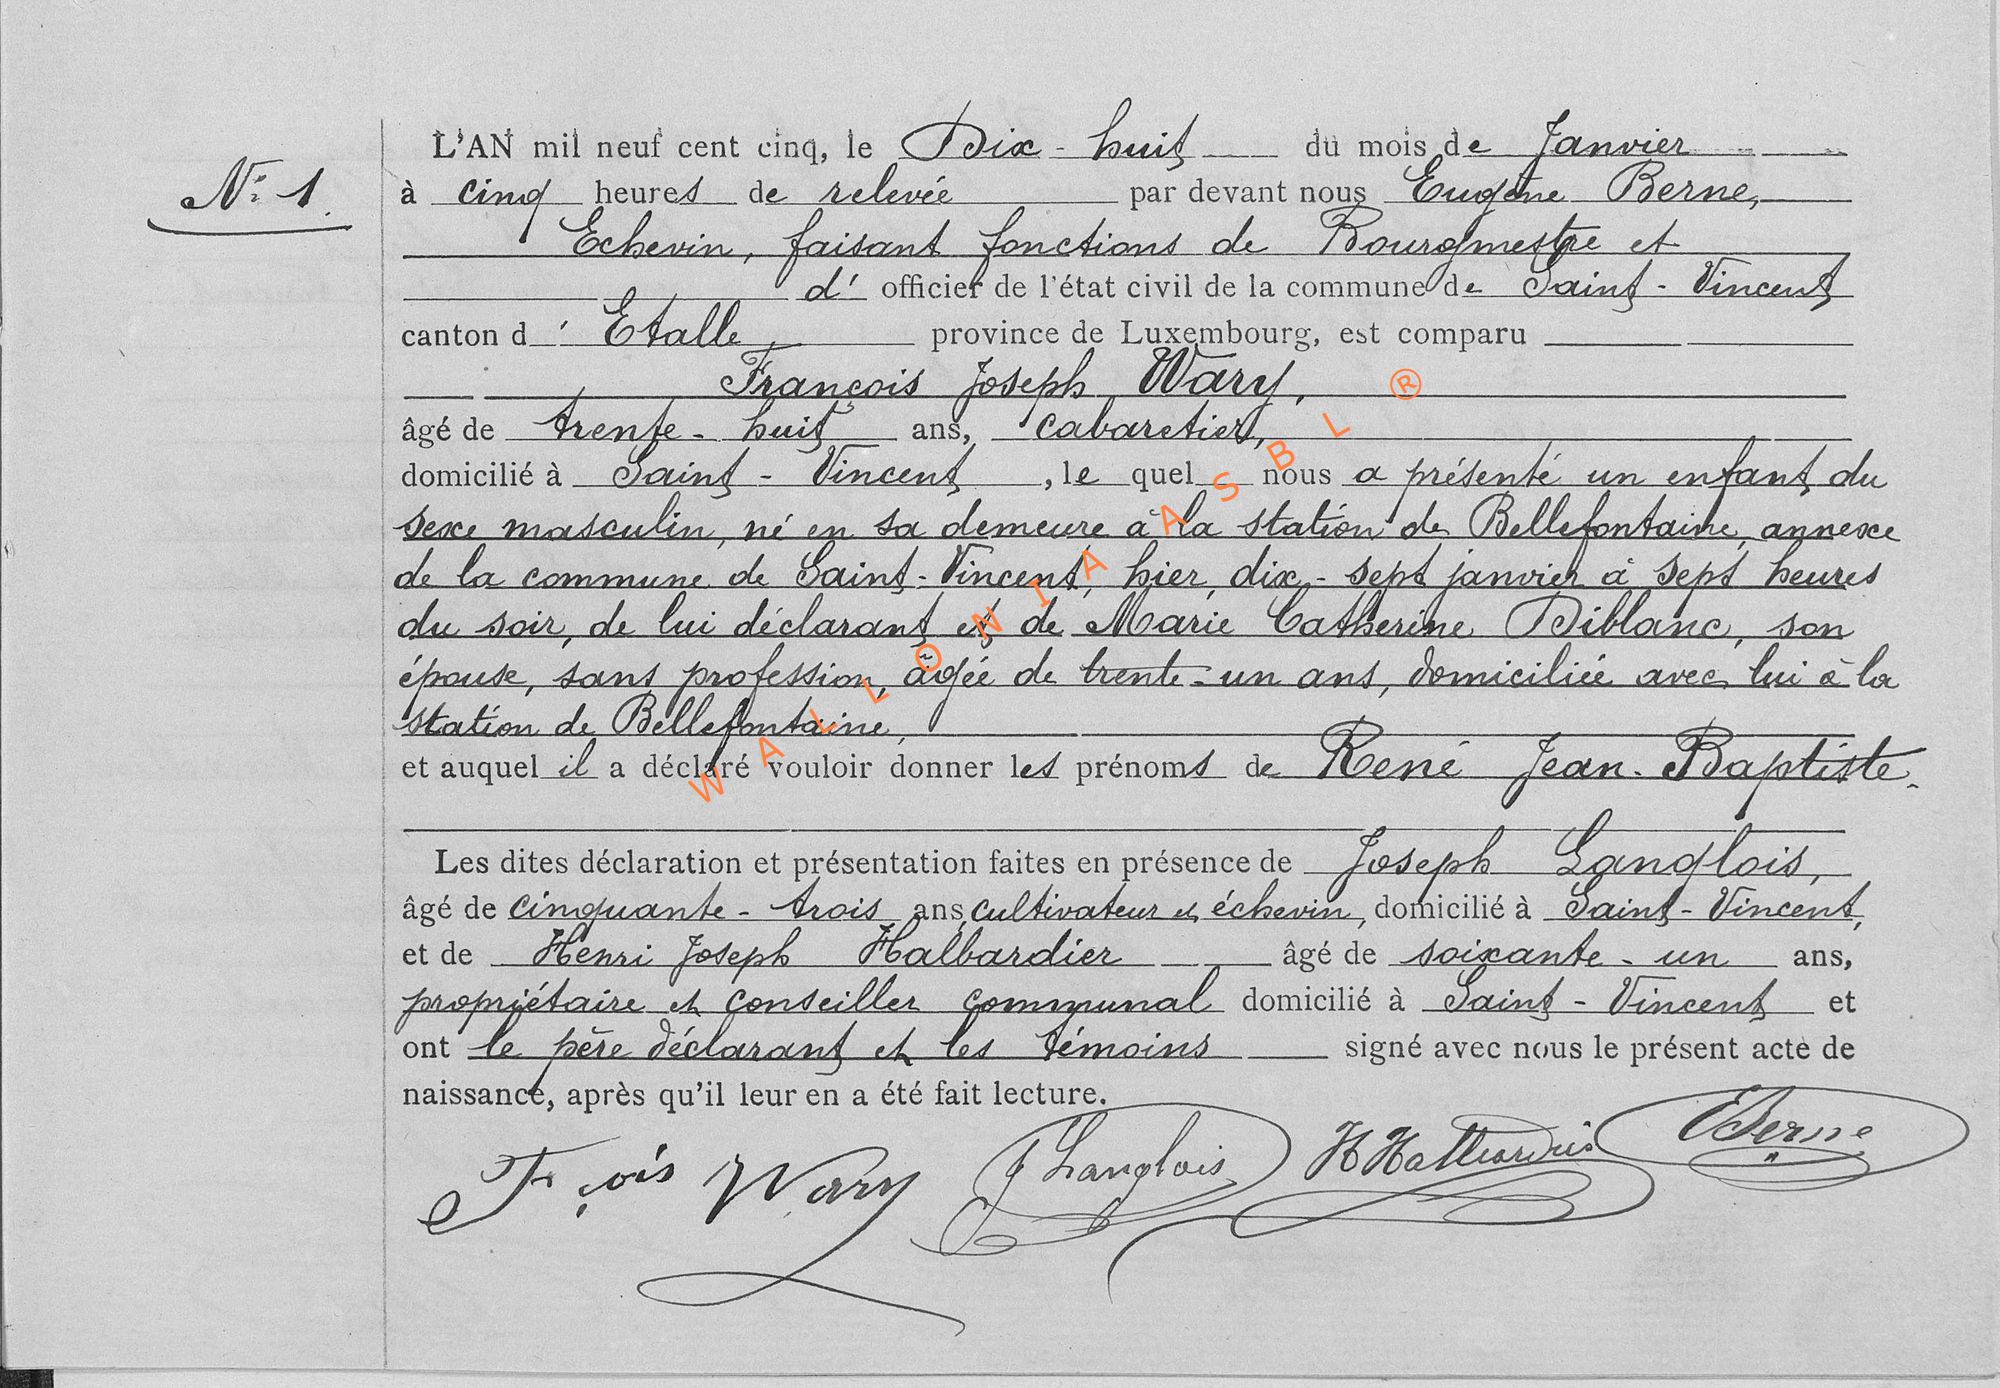 N° 1.
L'AN mil neuf cent cinq, le Dix-huit du mois de Janvier
à cinq heures de relevée par devant nous Eugène Berne,
Echevin, faisant fonctions de Bourgmestre et
d' officier de l'état civil de la commune de Saint-Vincent
canton d' Etalle, province de Luxembourg, est comparu
François Joseph Wary,
âgé de trente-huit ans, cabaretier,
domicilié à Saint-Vincent, le quel nous a présenté un enfant du
sexe masculin, né en sa demeure à la station de Bellefontaine, annexe
de la commune de Saint-Vincent, hier, dix-sept janvier à sept heures
du soir, de lui déclarant et de Marie Catherine Diblanc, son
épouse, sans profession, âgée de trente-un ans, domiciliée avec lui à la
station de Bellefontaine,
et auquel il a déclaré vouloir donner les prénoms de René Jean-Baptiste.
Les dites déclaration et présentation faites en présence de Joseph Langlois,
âgé de cinquante-trois ans, cultivateur et échevin, domicilié à Saint-Vincent,
et de Henri Joseph Halbardier âgé de soixante-un ans,
propriétaire et conseiller communal domicilié à Saint-Vincent et
ont le père déclarant et les témoins signé avec nous le présent acte de
naissance, après qu'il leur en a été fait lecture.
Fçois Wary J Langlois H Halbardier EBerne
WALLONIA ASBL ®